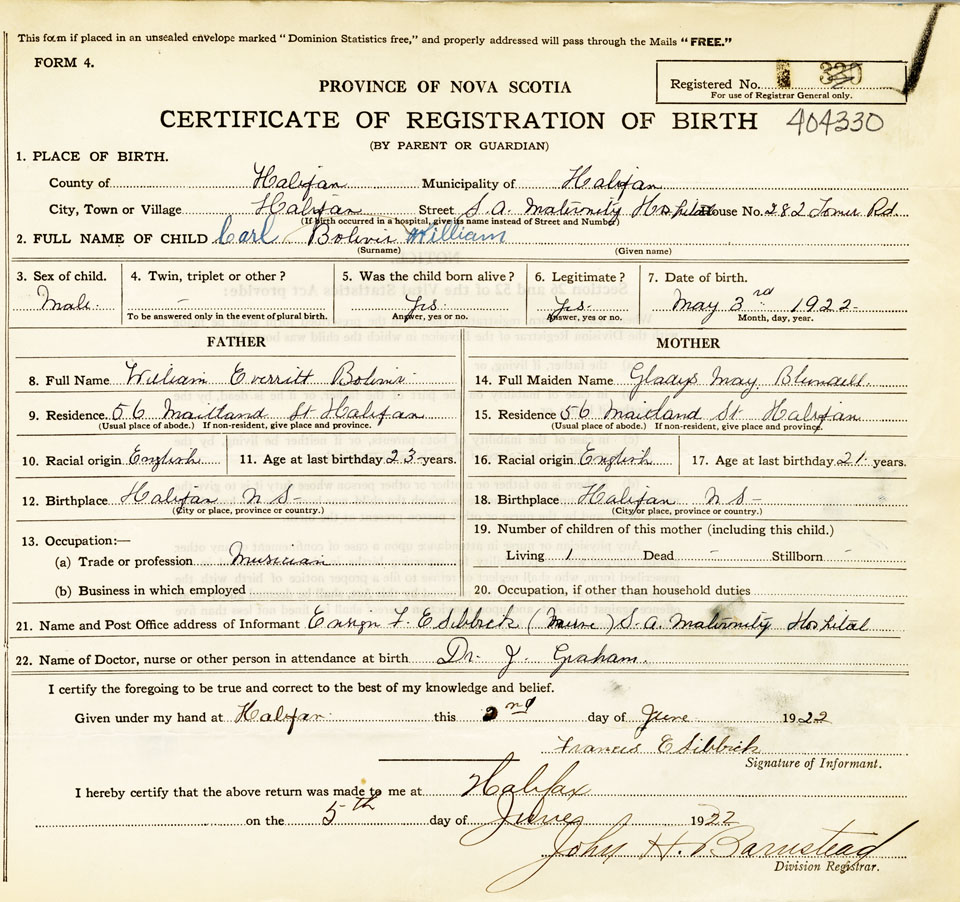 This form if placed in an unsealed envelope marked "Dominion Statistics free," and properly addressed will pass through the Mails "FREE."
FORM 4.
PROVINCE OF NOVA SCOTIA
Registered No. 330
For use of Registrar General only.
CERTIFICATE OF REGISTRATION OF BIRTH 404330
(BY PARENT OR GUARDIAN)
1. PLACE OF BIRTH.
County of Halifax Municipality of Halifax
City, Town or Village Halifax Street S.A. Maternity Hospital House No. 282 Tower Rd
(If birth occurred in a hospital, give its name instead of Street and Number)
2. FULL NAME OF CHILD Carl Bolivir William
(Surname) (Given name)
3. Sex of child. 4. Twin, triplet or other? 5. Was the child born alive? 6. Legitimate? 7. Date of birth.
Male. – Yes Yes May 3rd 1922
To be answered only in the event of plural birth. Answer, yes or no. Answer, yes or no. Month, day, year.
FATHER MOTHER
8. Full Name William Everritt 14. Full Maiden Name Gladys May Blundell.
9. Residence. 56 Maitland St Halifax 15. Residence 56 Maitland St Halifax
(Usual place of abode.) If non-resident, give place and province. (Usual place of abode.) If non-resident, give place and province.
10. Racial origin English 11. Age at last birthday 23 years. 16. Racial origin English 17. Age at last birthday 21 years.
12. Birthplace Halifax N S– 18. Birthplace Halifax N S–
(City or place, province or country.) (City or place, province or country.)
13. Occupation:— 19. Number of children of this mother (including this child.)
(a) Trade or profession Musician Living 1 Dead – Stillborn –
(b) Business in which employed 20. Occupation, if other than household duties
21. Name and Post Office address of Informant Ensign F. E Sibbick (Nurse) S.A. Maternity Hospital
22. Name of Doctor, nurse or other person in attendance at birth Dr. J. Graham.
I certify the foregoing to be true and correct to the best of my knowledge and belief.
Given under my hand at Halifax this 2nd day of June 1922
Francis E Sibbick
Signature of Informant.
I hereby certify that the above return was made to me at Halifax
on the 5th day of June 1922
John H. Barnstead
Division Registrar.